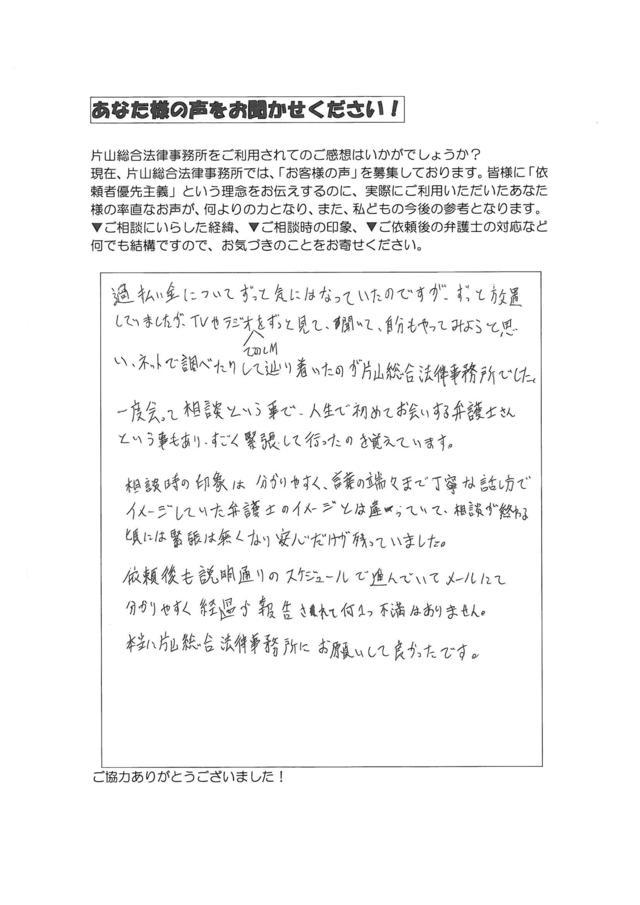 あなた様の声をお聞かせください！
片山総合法律事務所をご利用されてのご感想はいかがでしょうか？
現在、片山総合法律事務所では、「お客様の声」を募集しております。皆様に「依
頼者優先主義」という理念をお伝えするのに、実際にご利用いただいたあなた
様の率直なお声が、何よりの力となり、また、私どもの今後の参考となります。
▼ご相談にいらした経緯、▼ご相談時の印象、▼ご依頼後の弁護士の対応など
何でも結構ですので、お気づきのことをお寄せください。
過払い金についてずっと気にはなっていたのですが、ずっと放置
していましたが、TVやラジオをずっと見て、聞いて、自分もやってみようと思
のCM
い、ネットで調べたりして辿り着いたのが片山総合法律事務所でした。
一度会って相談という事で、人生で初めてお会いする弁護士さん
という事もあり、すごく緊張して行ったのを覚えています。
相談時の印象は分かりやすく、言葉の端々まで丁寧な話し方で
イメージしていた弁護士のイメージとは違っていて、相談が終わる
頃には緊張は無くなり安心だけが残っていました。
依頼後も説明通りのスケジュールで進んでいてメールにて
分かりやすく経過が報告されて何1つ不満はありません。
本当に片山総合法律事務所にお願いして良かったです。
ご協力ありがとうございました！